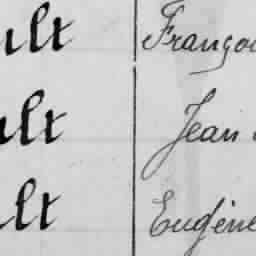 ult Franço
ult Jean
ult Eugène